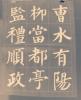 曹水有陽
柳當都亭
監禮順政